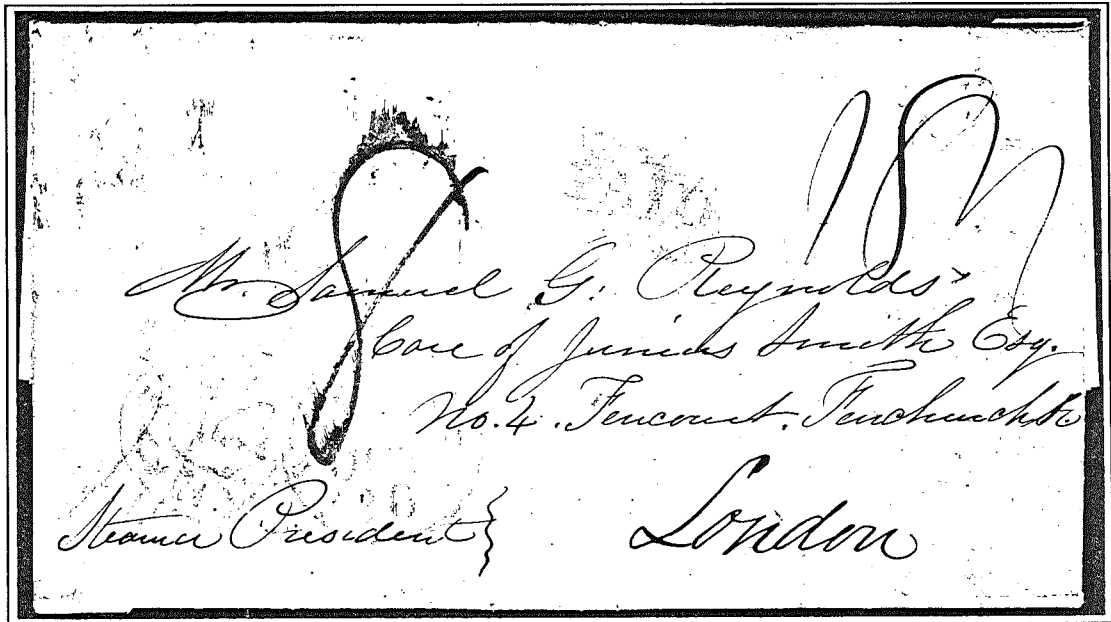 8
Mr. Samuel G. Reynolds
Care of Junius Smith Esq.
No. 4. Fencourt. Fenchurch St
Steamer President
London